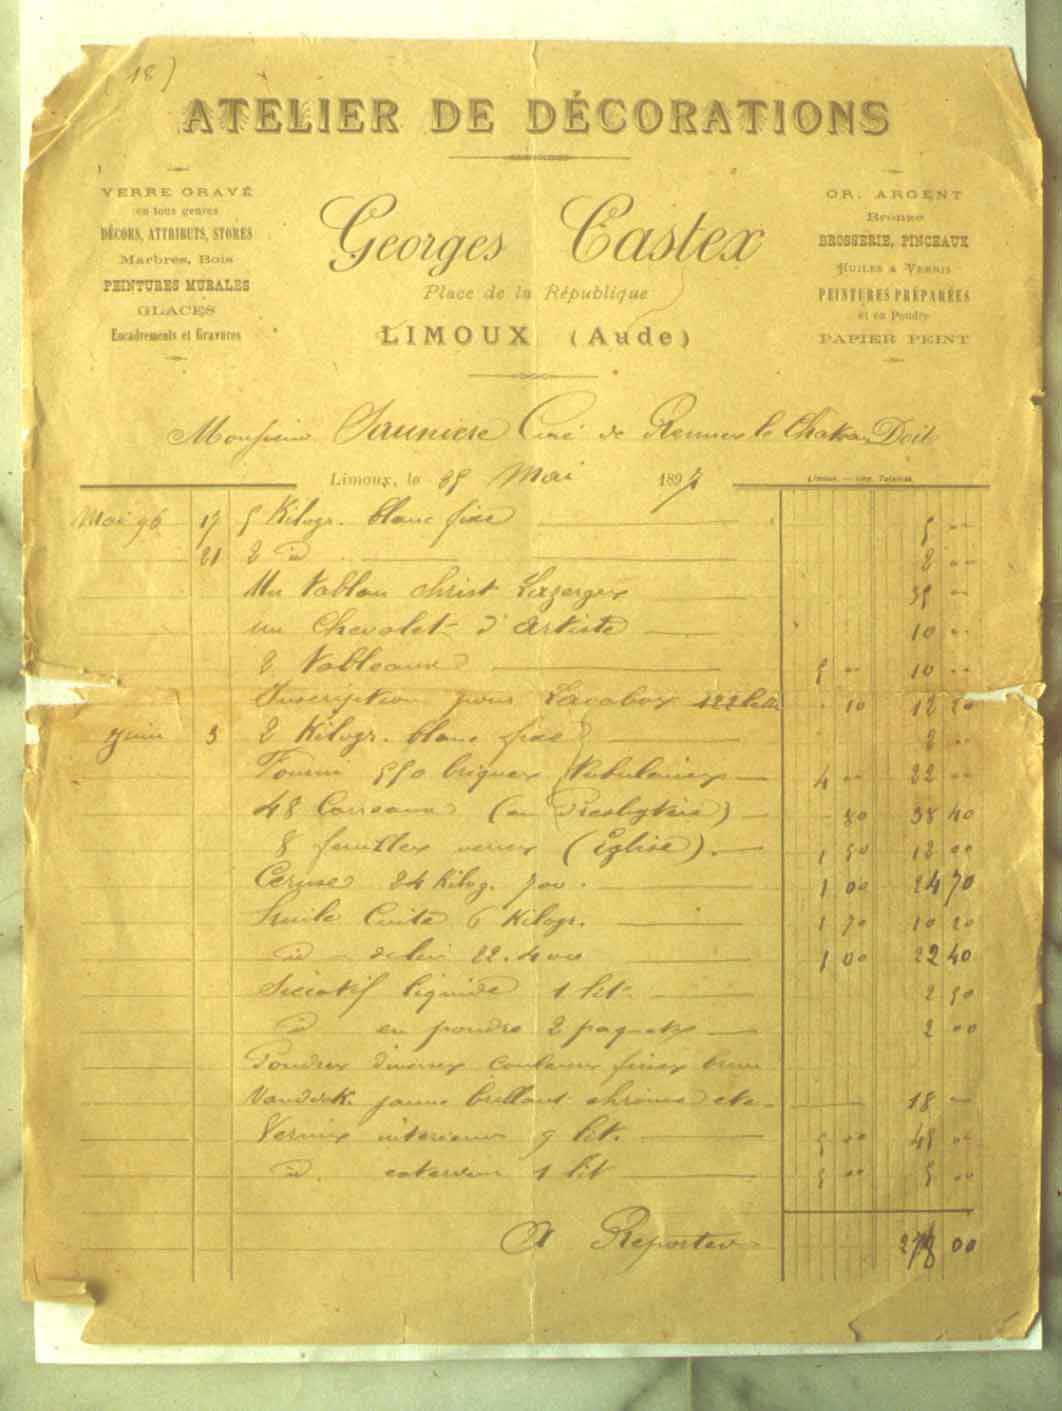 18)
ATELIER DE DÉCORATIONS
VERRE GRAVÉ
en tous genres
DÉCORS, ATTRIBUTS, STORES
Marbres, Bois
PEINTURES MURALES
GLACES
Encadrements et Gravures
Georges Castex
Place de la République
LIMOUX (Aude)
OR, ARGENT
Bronze
BROSSERIE, PINCEAUX
HUILES & VERNIS
PEINTURES PRÉPARÉES
et en Poudre
PAPIER PEINT
Monsieur Saunière Curé de Rennes le Chateau Doit
Limoux, le Mai 1897
Limoux. — Imp. Talamas.
Mai 96 17 5 Kilogr. blanc fixe 5 "
21 2 id 2 "
Un Tableau christ Lazerges 35 "
un Chevalet d'artiste 10 "
2 Tableaux 5 " 10 "
Inscription pour 122 lettr 10 12 20
Juin 3 2 Kilogr. blanc fixe 2 "
Fourni 550 briques tubulaires 4 " 22 "
48 Carreaux (au Presbytère) 80 38 40
8 feuilles verres (Église). 1 50 12 00
Ceruse 24 Kilog. 700. 1 00 24 70
huile Cuite 6 Kilogr. 1 70 10 20
id de lin 22.400 1 00 22 40
Siccatif liquide 1 lit. 2 50
id en poudre 2 paquets 2 00
Poudres diverses couleurs fines brun
Vandick jaune brillant chrome etc. 18 "
Vernis intérieur 9 lit. 5 00 45 00
id. exterieur 1 lit 5 00 5 00
A Reporter 278 00